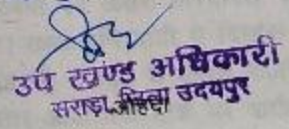 उप खण्ड अधिकारी
सराड़ा जिला उदयपुर